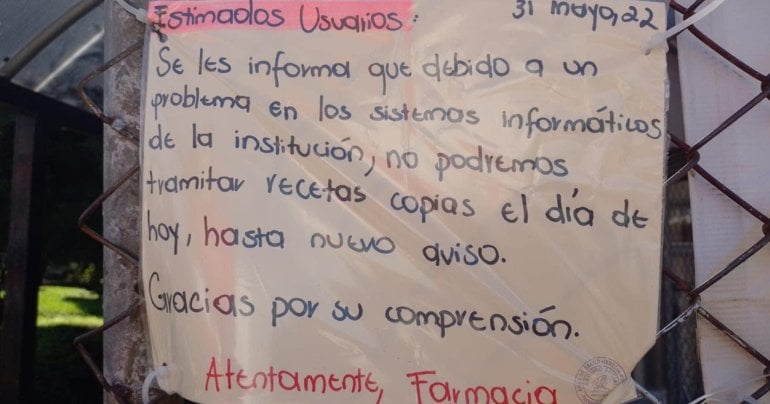 Estimados Usuarios:
31 mayo, 22
Se les informa que debido a un
problema en los sistemas informáticos
de la institución, no podremos
tramitar recetas copias el día de
hoy, hasta nuevo aviso.
Gracias por su comprensión.
Atentamente, Farmacia